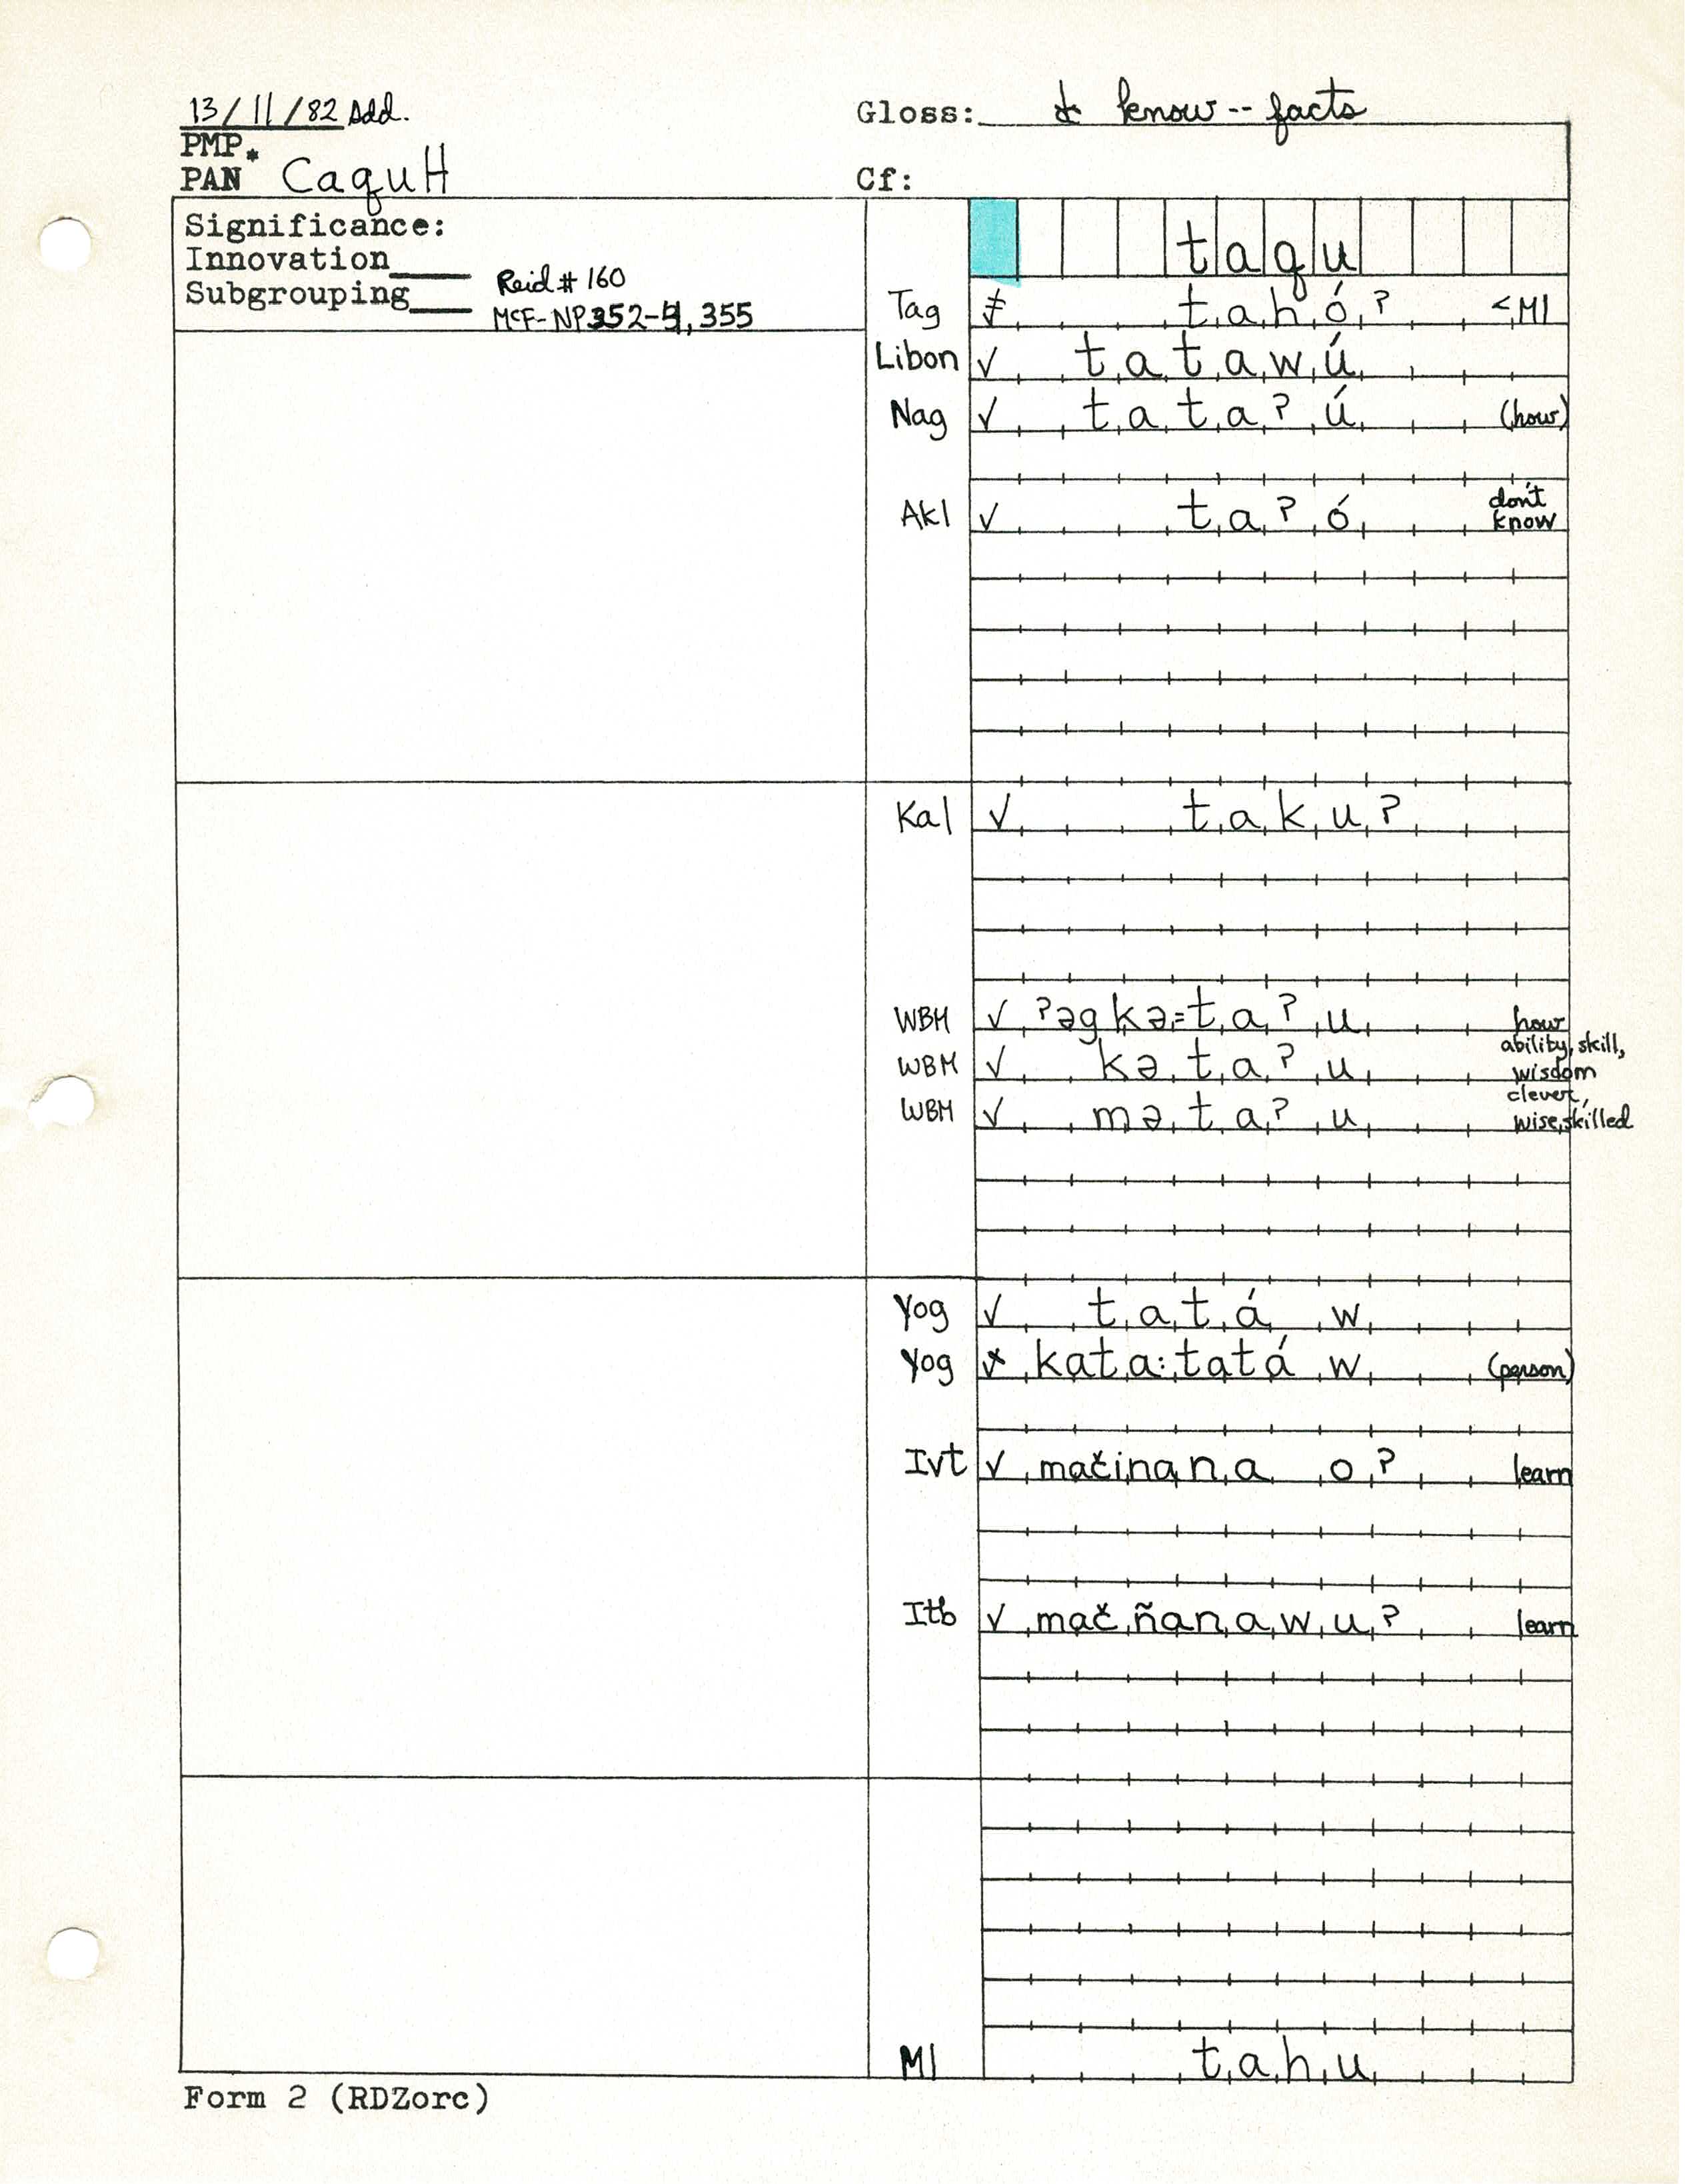 13/11/82 Add.
Gloss: & know -- facts
PMP*
PAN CaquH
Cf:
Significance:
Innovation____
Subgrouping____
Reid # 160
McF-NP352-4, 355
taqu
Tag ≠ tahó? <Ml
Libon √ tatawú
Nag √ tata?ú (how)
Akl √ ta?ó don't know
Kal √ taku?
WBM √ ?əgkə=ta?u how
WBM √ kəta?u ability, skill, wisdom
WBM √ məta?u clever, wise, skilled
Yog √ tatáw
Yog kata:tatáw (person)
Ivt √ mačinanao? learn
Itb √ mačñanawu? learn
Ml tahu
Form 2 (RDZorc)